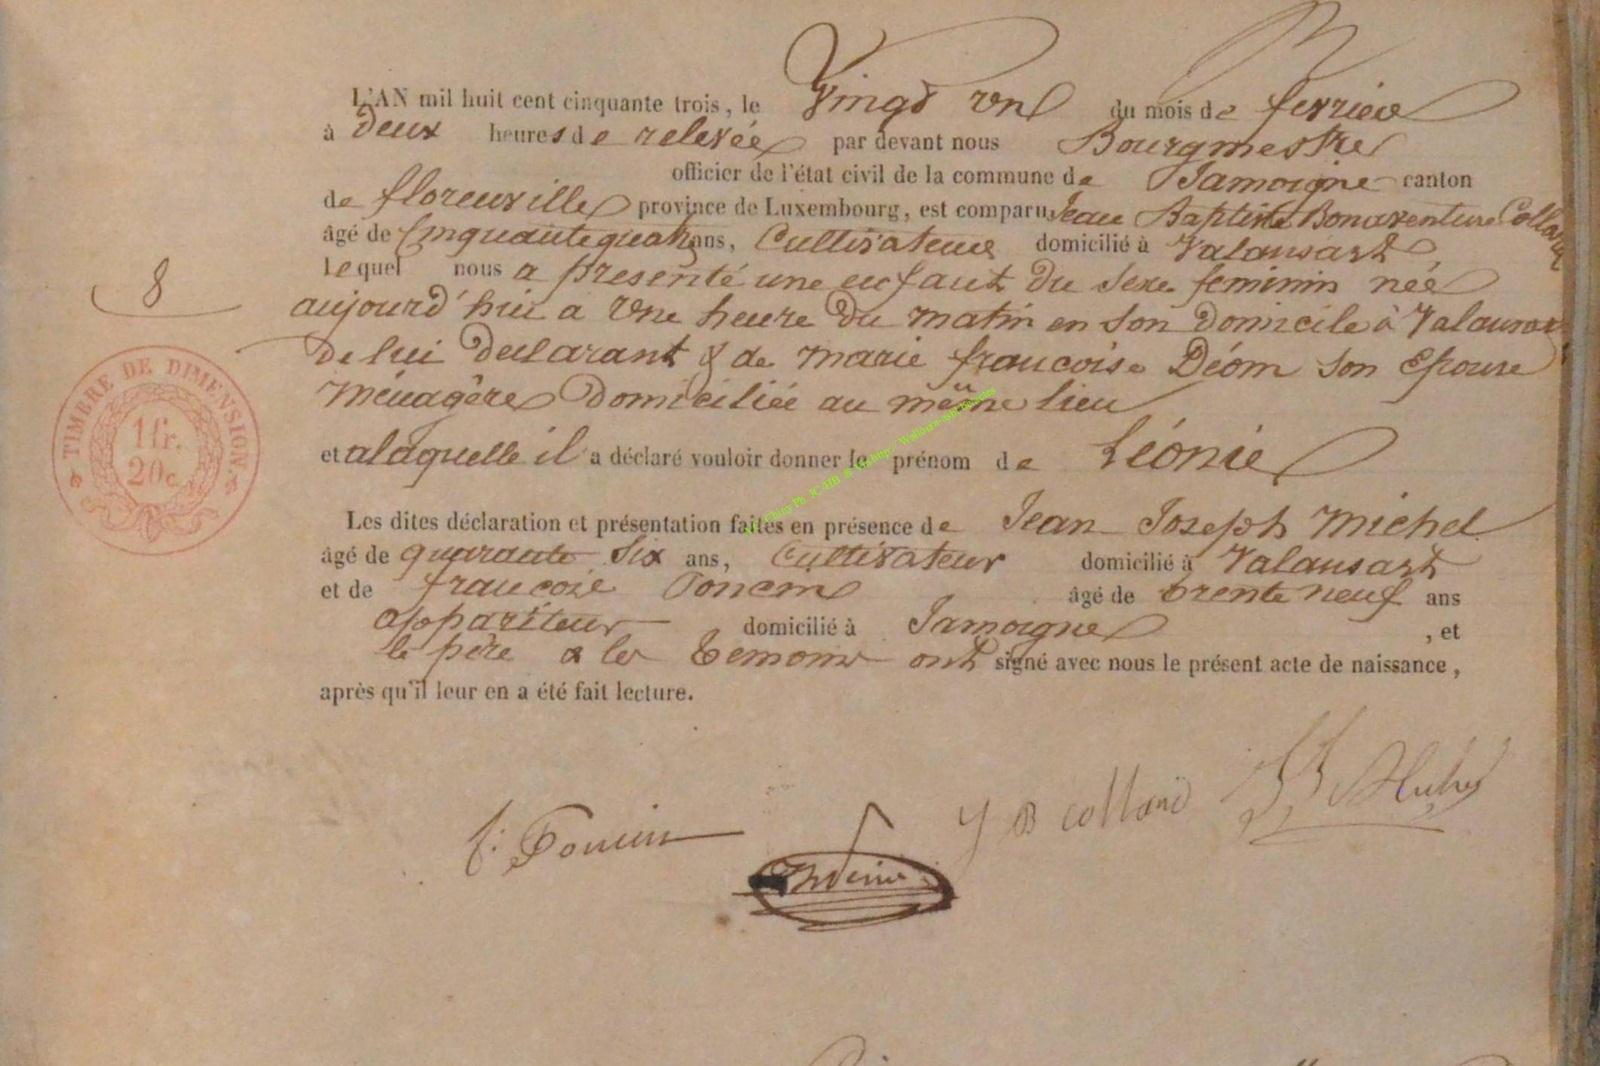 L'AN mil huit cent cinquante trois, le Vingt un du mois de fevrier
à deux heures de relevée par devant nous Bourgmestre
officier de l'état civil de la commune de Jamoigne canton
de florenville province de Luxembourg, est comparu Jean Baptiste Bonaventure Collard
âgé de Cinquante quatre ans, Cultivateur domicilié à Valansart
Lequel nous a presenté une enfant du sexe feminin née
8
aujourd'hui a Une heure du matin en son domicile à Valansart
de lui declarant & de marie francoise Déom son Epouse
Ménagère domiciliée au même lieu
TIMBRE DE DIMENSION
1 fr.
20 c.
et a laquelle il a déclaré vouloir donner le prénom de Léonie
Les dites déclaration et présentation faites en présence de Jean Joseph Michel
âgé de quarante Six ans, Cultivateur domicilié à Valansart
et de francoise Poncin âgé de trente neuf ans
appariteur domicilié à Jamoigne, et
le père & les temoins ont signé avec nous le présent acte de naissance,
après qu'il leur en a été fait lecture.
J B collard
f: Poncin